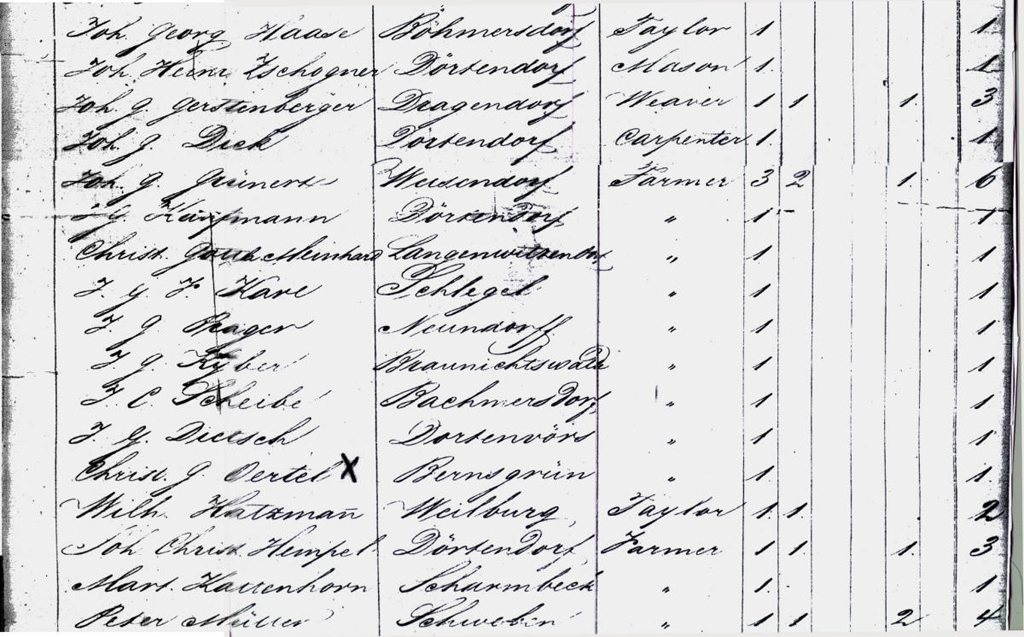 Joh. Georg Haase Böhmersdorf Taylor 1 1
Joh. Heinr. Zschogner Dörtendorf Mason 1. 1
Joh. G. Gerstenberger Dragendorf Weaver 1 1 1. 3
Joh. G. Dick Dörtendorf Carpenter 1. 1
Joh. G. Grünert Weisendorf Farmer 3 2 1. 6
J G Kaufmann Dörtendorf " 1 1
Christ. Meinhard " 1 1
J. G. F. Karl Schlegel " 1 1
J. G. Neundorff " 1 1
J G. Kyber Braunichtswald " 1 1
J. C. Scheibe Bachmersdorf " 1 1
J. G. Dietsch " 1 1
Christ. G. Oertel X Bernsgrün " 1 1
Wilh. Hatzman̄ Weilburg Taylor 1. 1. 2
Joh Christ. Hempel Dörtendorf Farmer 1 1 1. 3
Mart. Kattenhorn Scharmbeck " 1. 1
Peter Müller Schweben " 1 1 2 4